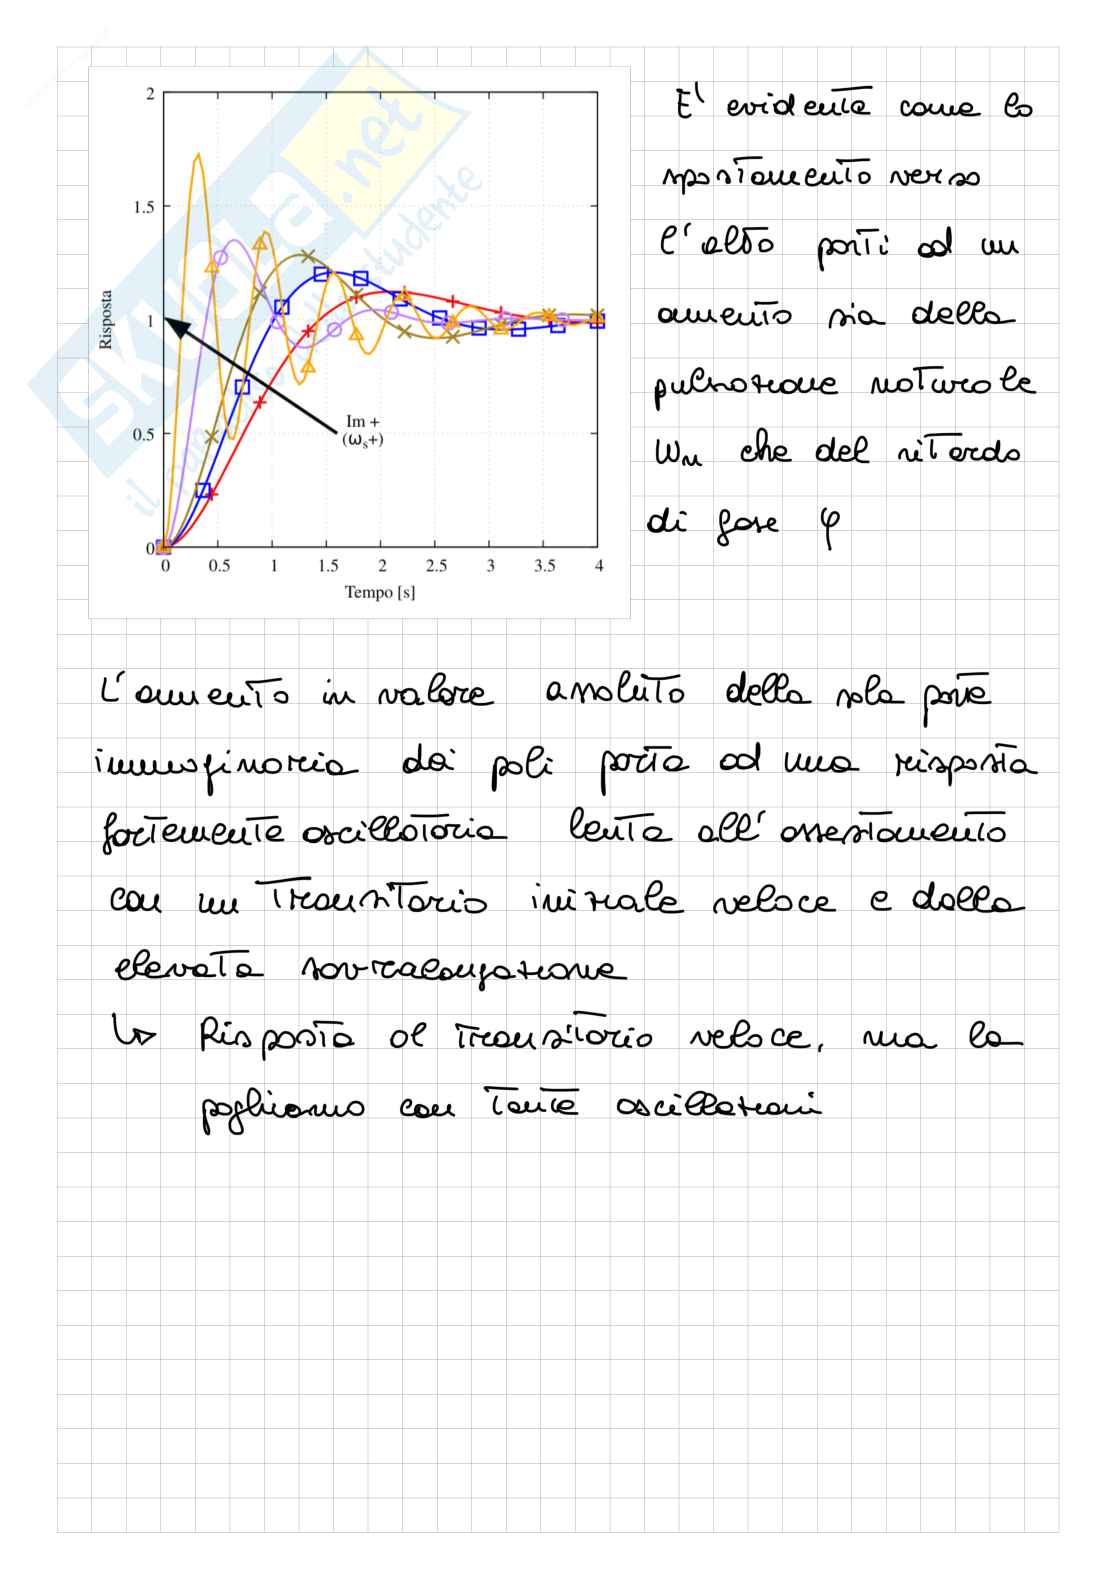 E' evidente come lo
spostamento verso
l'alto porti ad un
aumento sia della
pulsazione naturale
Wn che del ritardo
di fase φ
2
1.5
1
0.5
0
Risposta
Im +
(ωs+)
0 0.5 1 1.5 2 2.5 3 3.5 4
Tempo [s]
SKUOLA.net
il studente
L'aumento in valore assoluto della sola parte
immaginaria dei poli porta ad una risposta
fortemente oscillatoria lenta all'assestamento
con un transitorio iniziale veloce e dalla
elevata sovraelongazione
↳ Risposta al transitorio veloce, ma la
paghiamo con tante oscillazioni